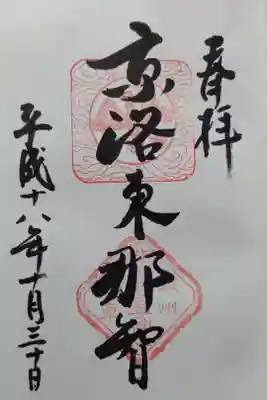 奉拝
京洛東那智
平成十八年十月三十日